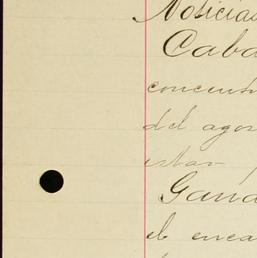 Noticias
Caba
concentr
del agos
estar
Gana
el enca